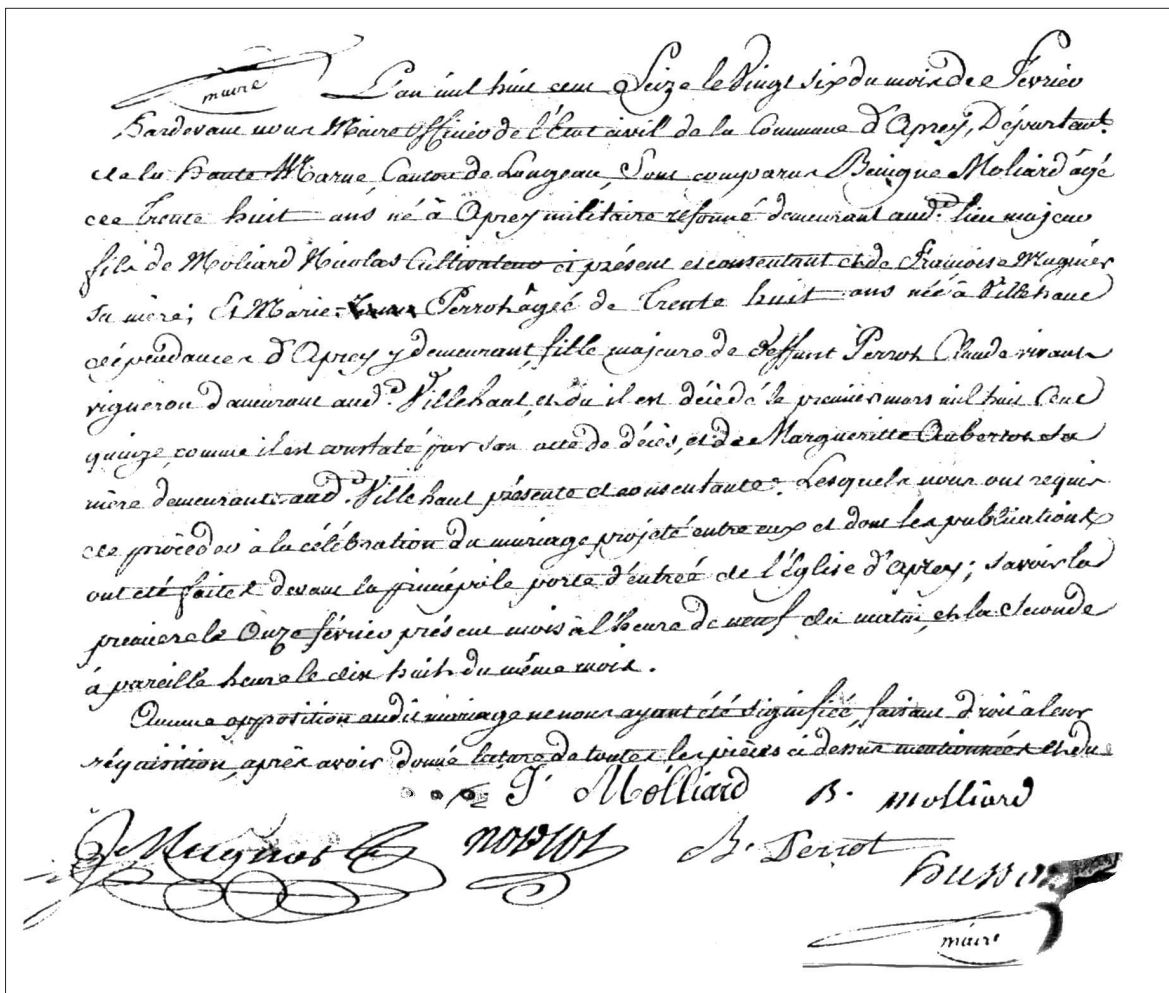 maire
L'an mil huit cent Seize le Vingt six du mois de Février
Pardevant nous Maire Officier de l'État civil de la Commune d'Aprey, Départemt.
de la Haute Marne, Canton de Longeau, Sont comparus Benigne Moliard âgé
de trente huit ans né à Aprey militaire réformé demeurant aud. lieu majeur
fils de Moliard Nicolas Cultivateur ci présent et consentant et de Françoise Mugnier
sa mère; Et Marie Perrot âgée de trente huit ans née à Villehaut
dépendances d'Aprey y demeurant, fille majeure de deffunt Perrot Claude vivant
vigneron demeurant aud. Villehaut, et où il est décédé le premier mars mil huit Cent
quinze comme il est constaté par son acte de décès, et de Margueritte Auberton Sa
mère demeurant aud. Villehaut présente et consentante. Lesquels nous ont requis
de procéder à la célébration du mariage projeté entre eux et dont les publications
ont été faites devant la principile porte d'entreé de l'Église d'Aprey; savoir la
premiere le Onze février présent mois à l'heure de neuf du matin, et la Seconde
à pareille heure le dix huit du même mois.
Aucune opposition audit mariage ne nous ayant été signifiée, faisant droit à leur
réquisition, après avoir donné lecture de toutes les pièces ci dessus mentionnées et du
Molliard B. Molliard
Mugnier B. Perrot
husson
maire